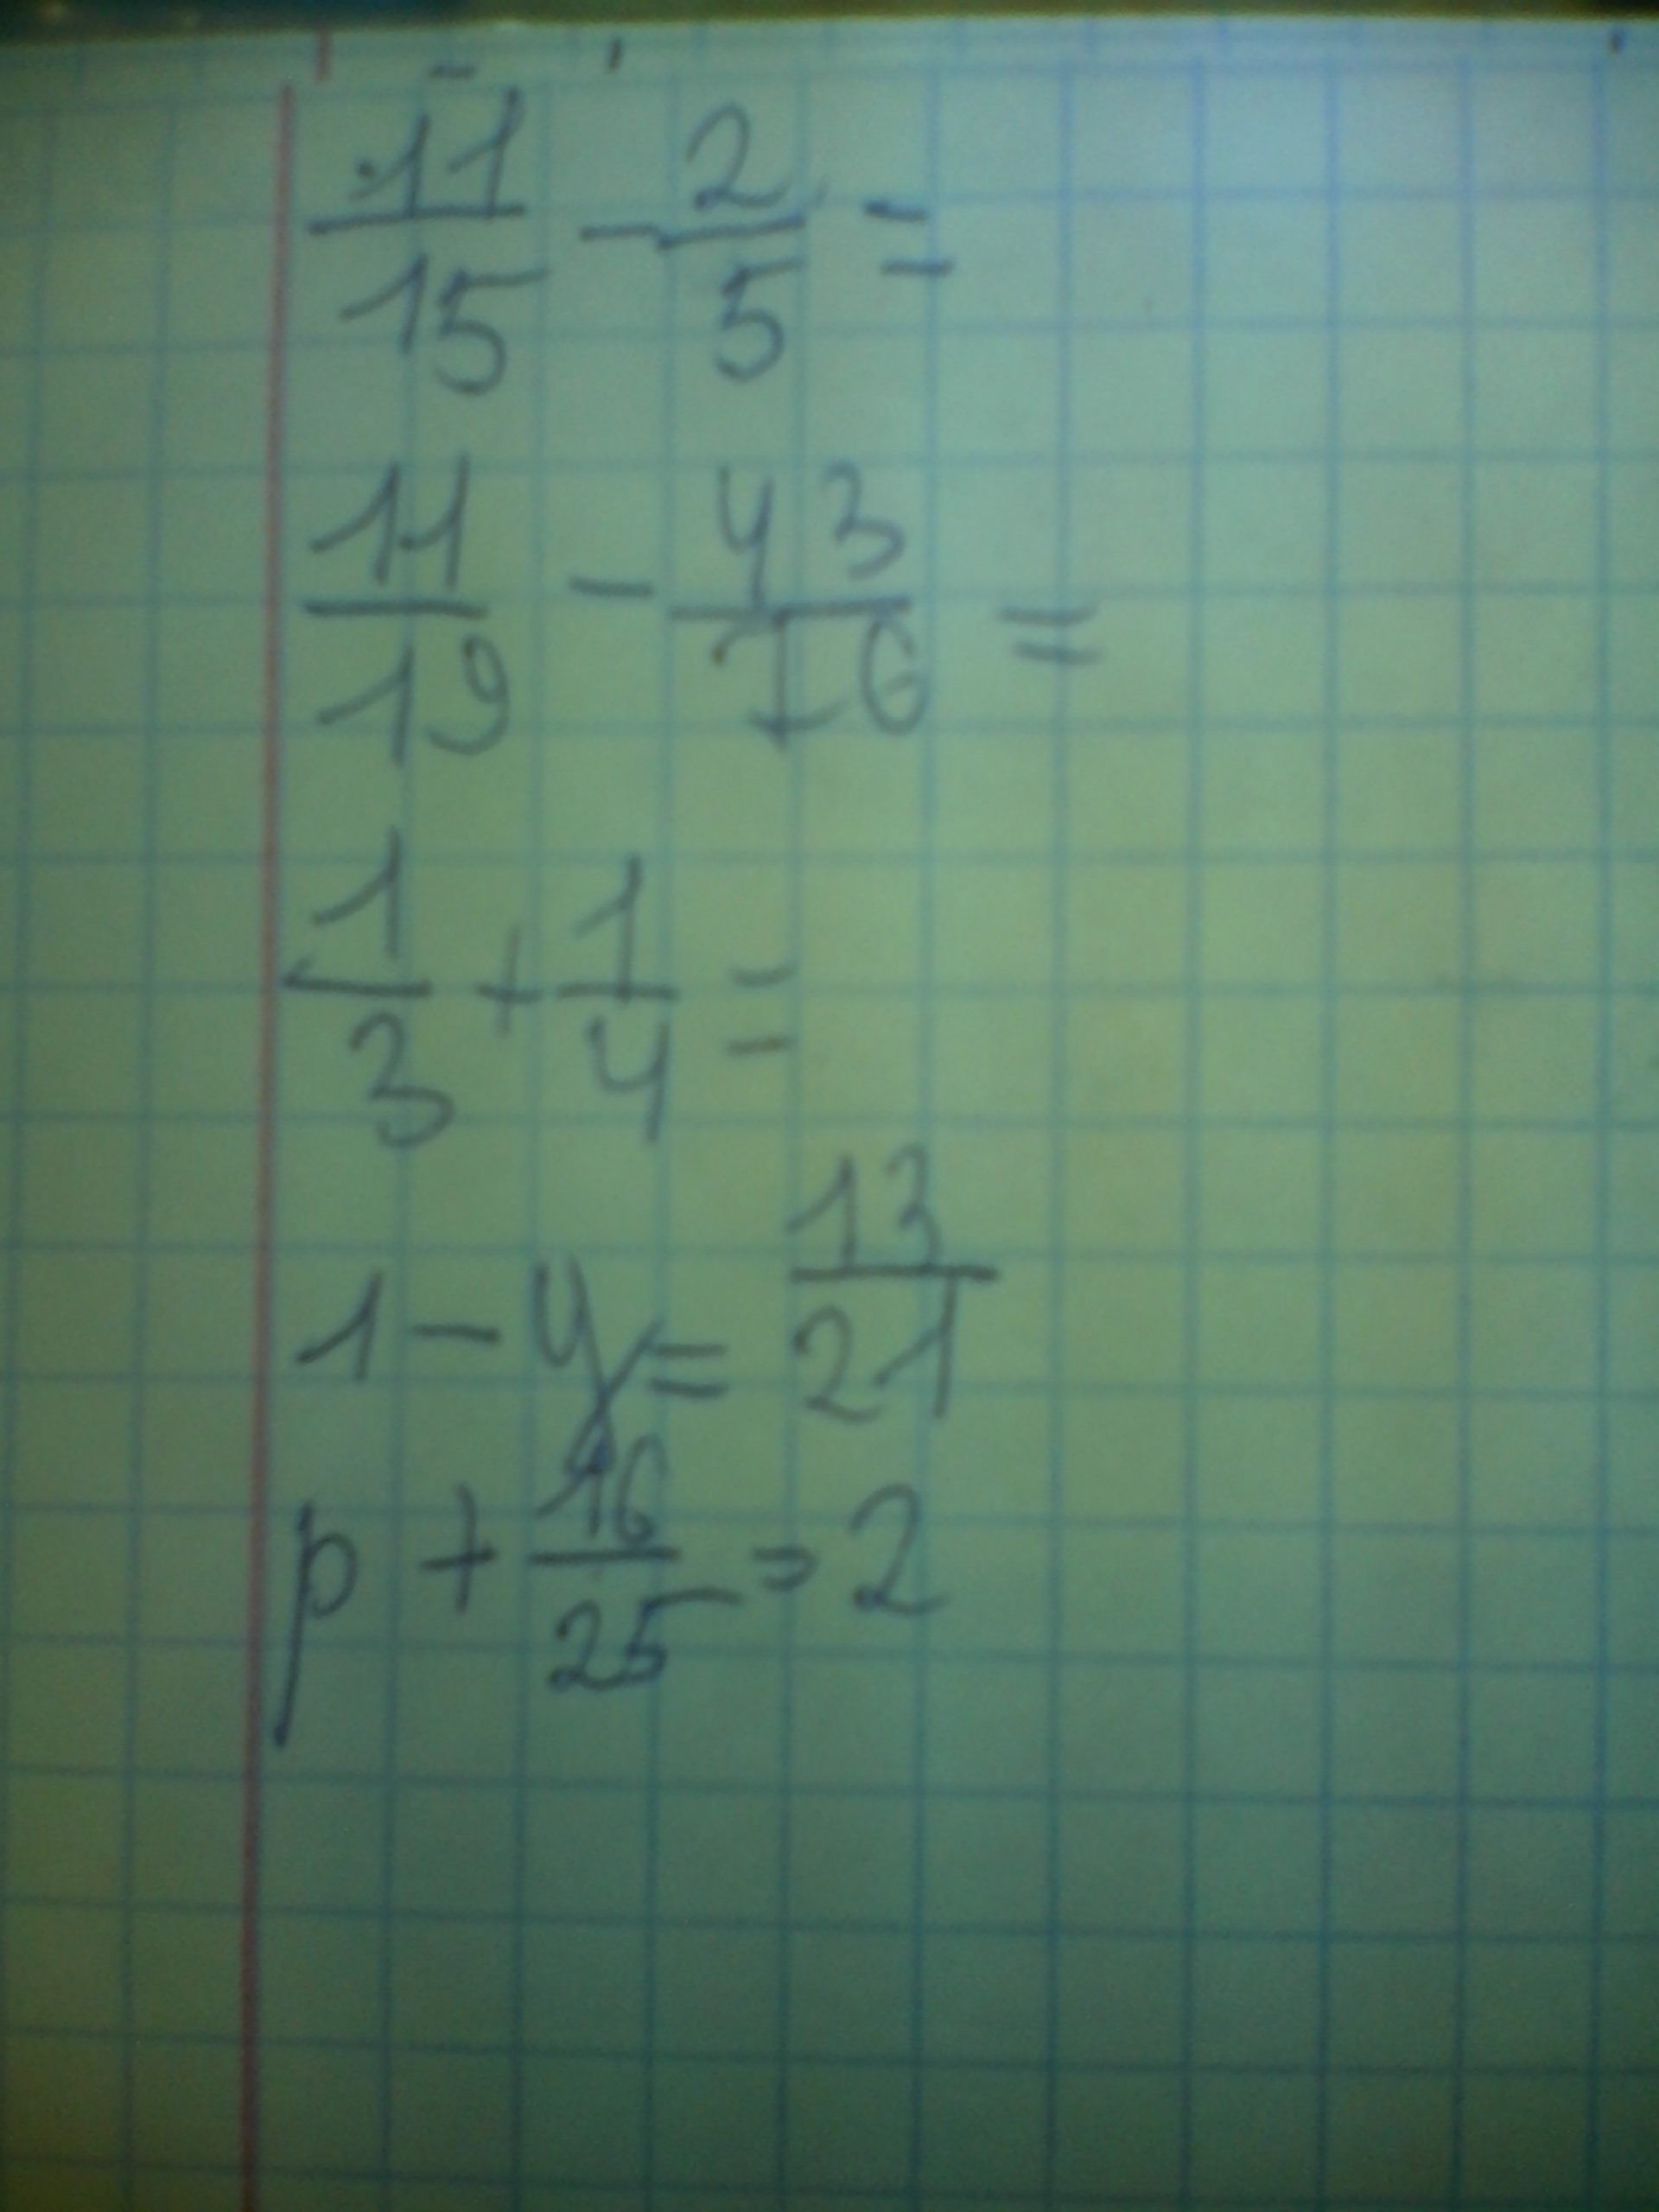 11/15 - 2/5 =
11/19 - 43/76 =
1/3 + 1/4 =
1 - y = 13/21
p + 16/25 = 2